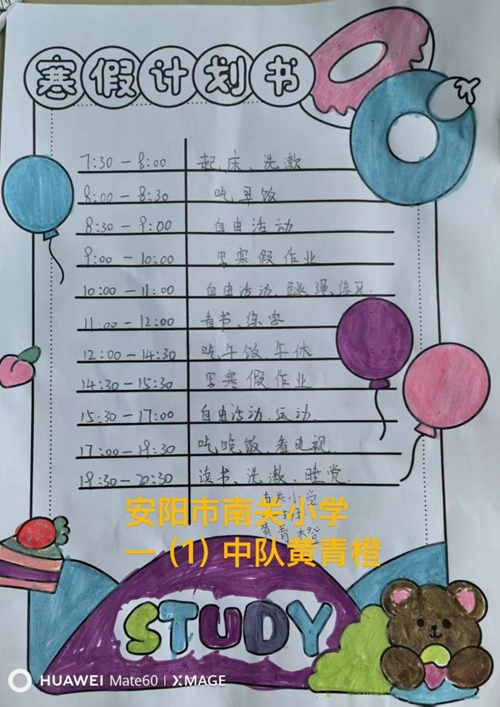 寒假计划书
7:30-8:00 起床、洗漱
8:00-8:30 吃早饭
8:30-9:00 自由活动
9:00-10:00 写寒假作业
10:00-11:00 自由活动、跳绳练习
11:00-12:00 看书、练字
12:00-14:30 吃午饭午休
14:30-15:30 写寒假作业
15:30-17:00 自由活动、运动
17:00-19:30 吃晚饭、看电视
19:30-20:30 读书、洗漱、睡觉
安阳市南关小学
一（1）中队黄青橙
STUDY
HUAWEI Mate60 | XMAGE